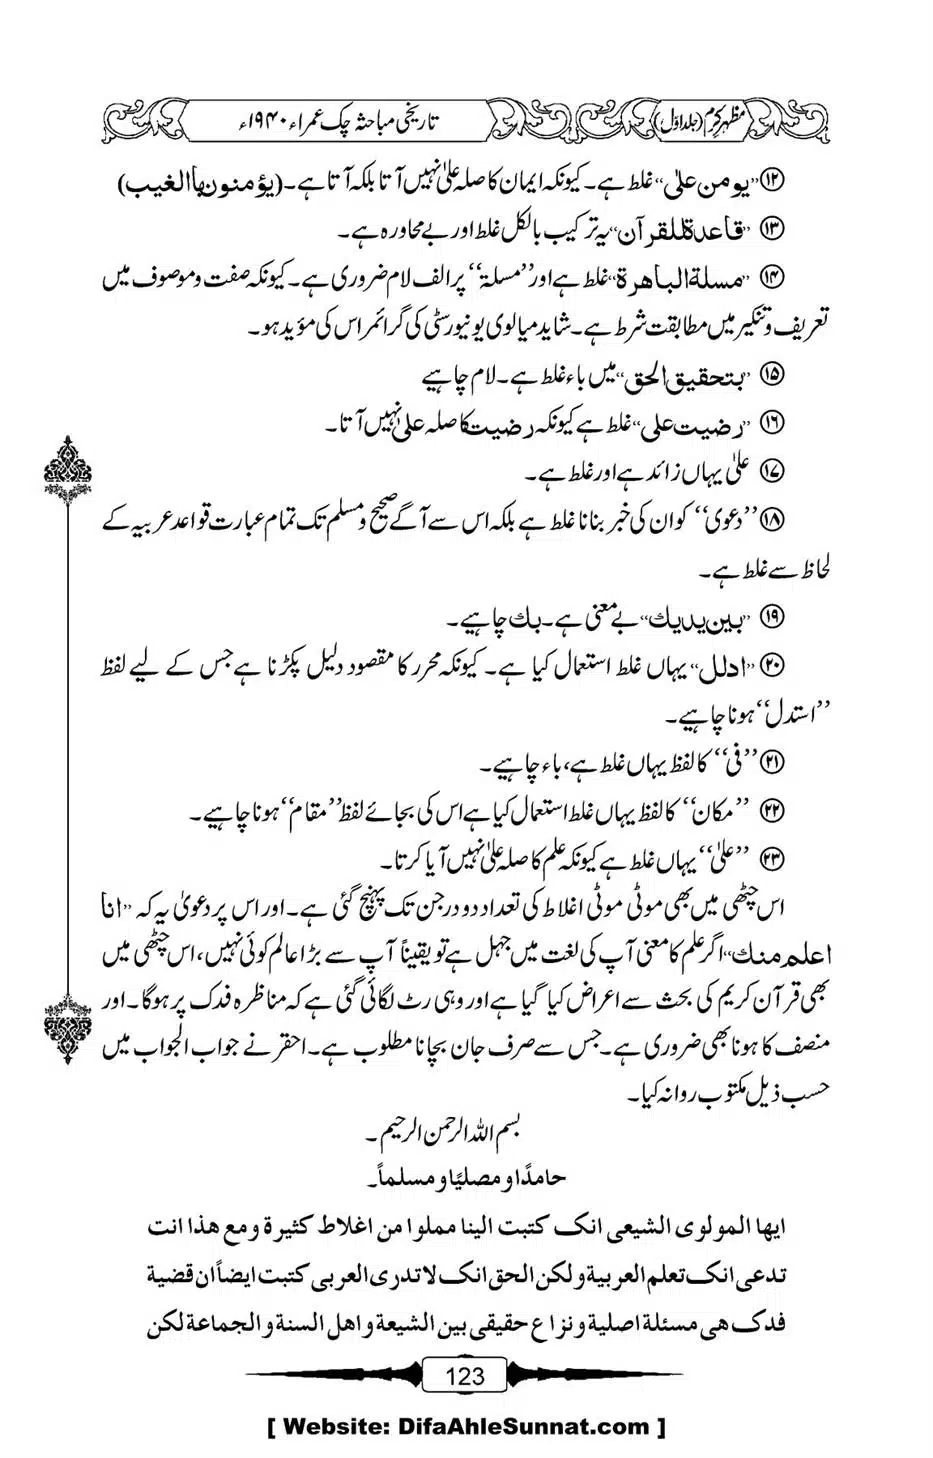 مظہر کرم (جلد اوّل)
تاریخی مباحثہ چک عمراء ۱۹۴۰ء
⑫ ”یومن علیٰ“ غلط ہے۔ کیونکہ ایمان کا صلہ علیٰ نہیں آتا بلکہ آتا ہے۔ (یؤمنون بالغیب)
⑬ ”قاعدة للقرآن“ یہ ترکیب بالکل غلط اور بے محاورہ ہے۔
⑭ ”مسلة الباهرة“ غلط ہے اور ”مسلة“ پر الف لام ضروری ہے۔ کیونکہ صفت و موصوف میں
تعریف و تنکیر میں مطابقت شرط ہے۔ شاید میالوی یونیورسٹی کی گرائمر اس کی مؤید ہو۔
⑮ ”بتحقیق الحق“ میں باء غلط ہے۔ لام چاہیے
⑯ ”رضیت علی“ غلط ہے کیونکہ رضیت کا صلہ علیٰ نہیں آتا۔
⑰ علیٰ یہاں زائد ہے اور غلط ہے۔
⑱ ”دعویٰ“ کو ان کی خبر بنانا غلط ہے بلکہ اس سے آگے صحیح و مسلم تک تمام عبارت قواعد عربیہ کے
لحاظ سے غلط ہے۔
⑲ ”بین یدیك“ بے معنی ہے۔ بك چاہیے۔
⑳ ”ادلل“ یہاں غلط استعمال کیا ہے۔ کیونکہ محرر کا مقصود دلیل پکڑنا ہے جس کے لیے لفظ
”استدل“ ہونا چاہیے۔
㉑ ”فی“ کا لفظ یہاں غلط ہے، باء چاہیے۔
㉒ ”مکان“ کا لفظ یہاں غلط استعمال کیا ہے اس کی بجائے لفظ ”مقام“ ہونا چاہیے۔
㉓ ”علیٰ“ یہاں غلط ہے کیونکہ علم کا صلہ علیٰ نہیں آیا کرتا۔
اس چٹھی میں بھی موٹی موٹی اغلاط کی تعداد دو درجن تک پہنچ گئی ہے۔ اور اس پر دعویٰ یہ کہ ”انا
اعلم منك“ اگر علم کا معنی آپ کی لغت میں جہل ہے تو یقیناً آپ سے بڑا عالم کوئی نہیں، اس چٹھی میں
بھی قرآن کریم کی بحث سے اعراض کیا گیا ہے اور وہی رٹ لگائی گئی ہے کہ مناظرہ فدک پر ہوگا۔ اور
منصف کا ہونا بھی ضروری ہے۔ جس سے صرف جان بچانا مطلوب ہے۔ احقر نے جواب الجواب میں
حسب ذیل مکتوب روانہ کیا۔
بسم اللہ الرحمن الرحیم۔
حامدًا و مصلیًا و مسلماً۔
ایها المولوی الشیعی انک کتبت الینا مملوا من اغلاط کثیرة و مع هذا انت
تدعی انک تعلم العربیة ولکن الحق انک لا تدری العربی کتبت ایضاً ان قضیة
فدک هی مسئلة اصلیة و نزاع حقیقی بین الشیعة و اهل السنة و الجماعة لکن
123
[ Website: DifaAhleSunnat.com ]